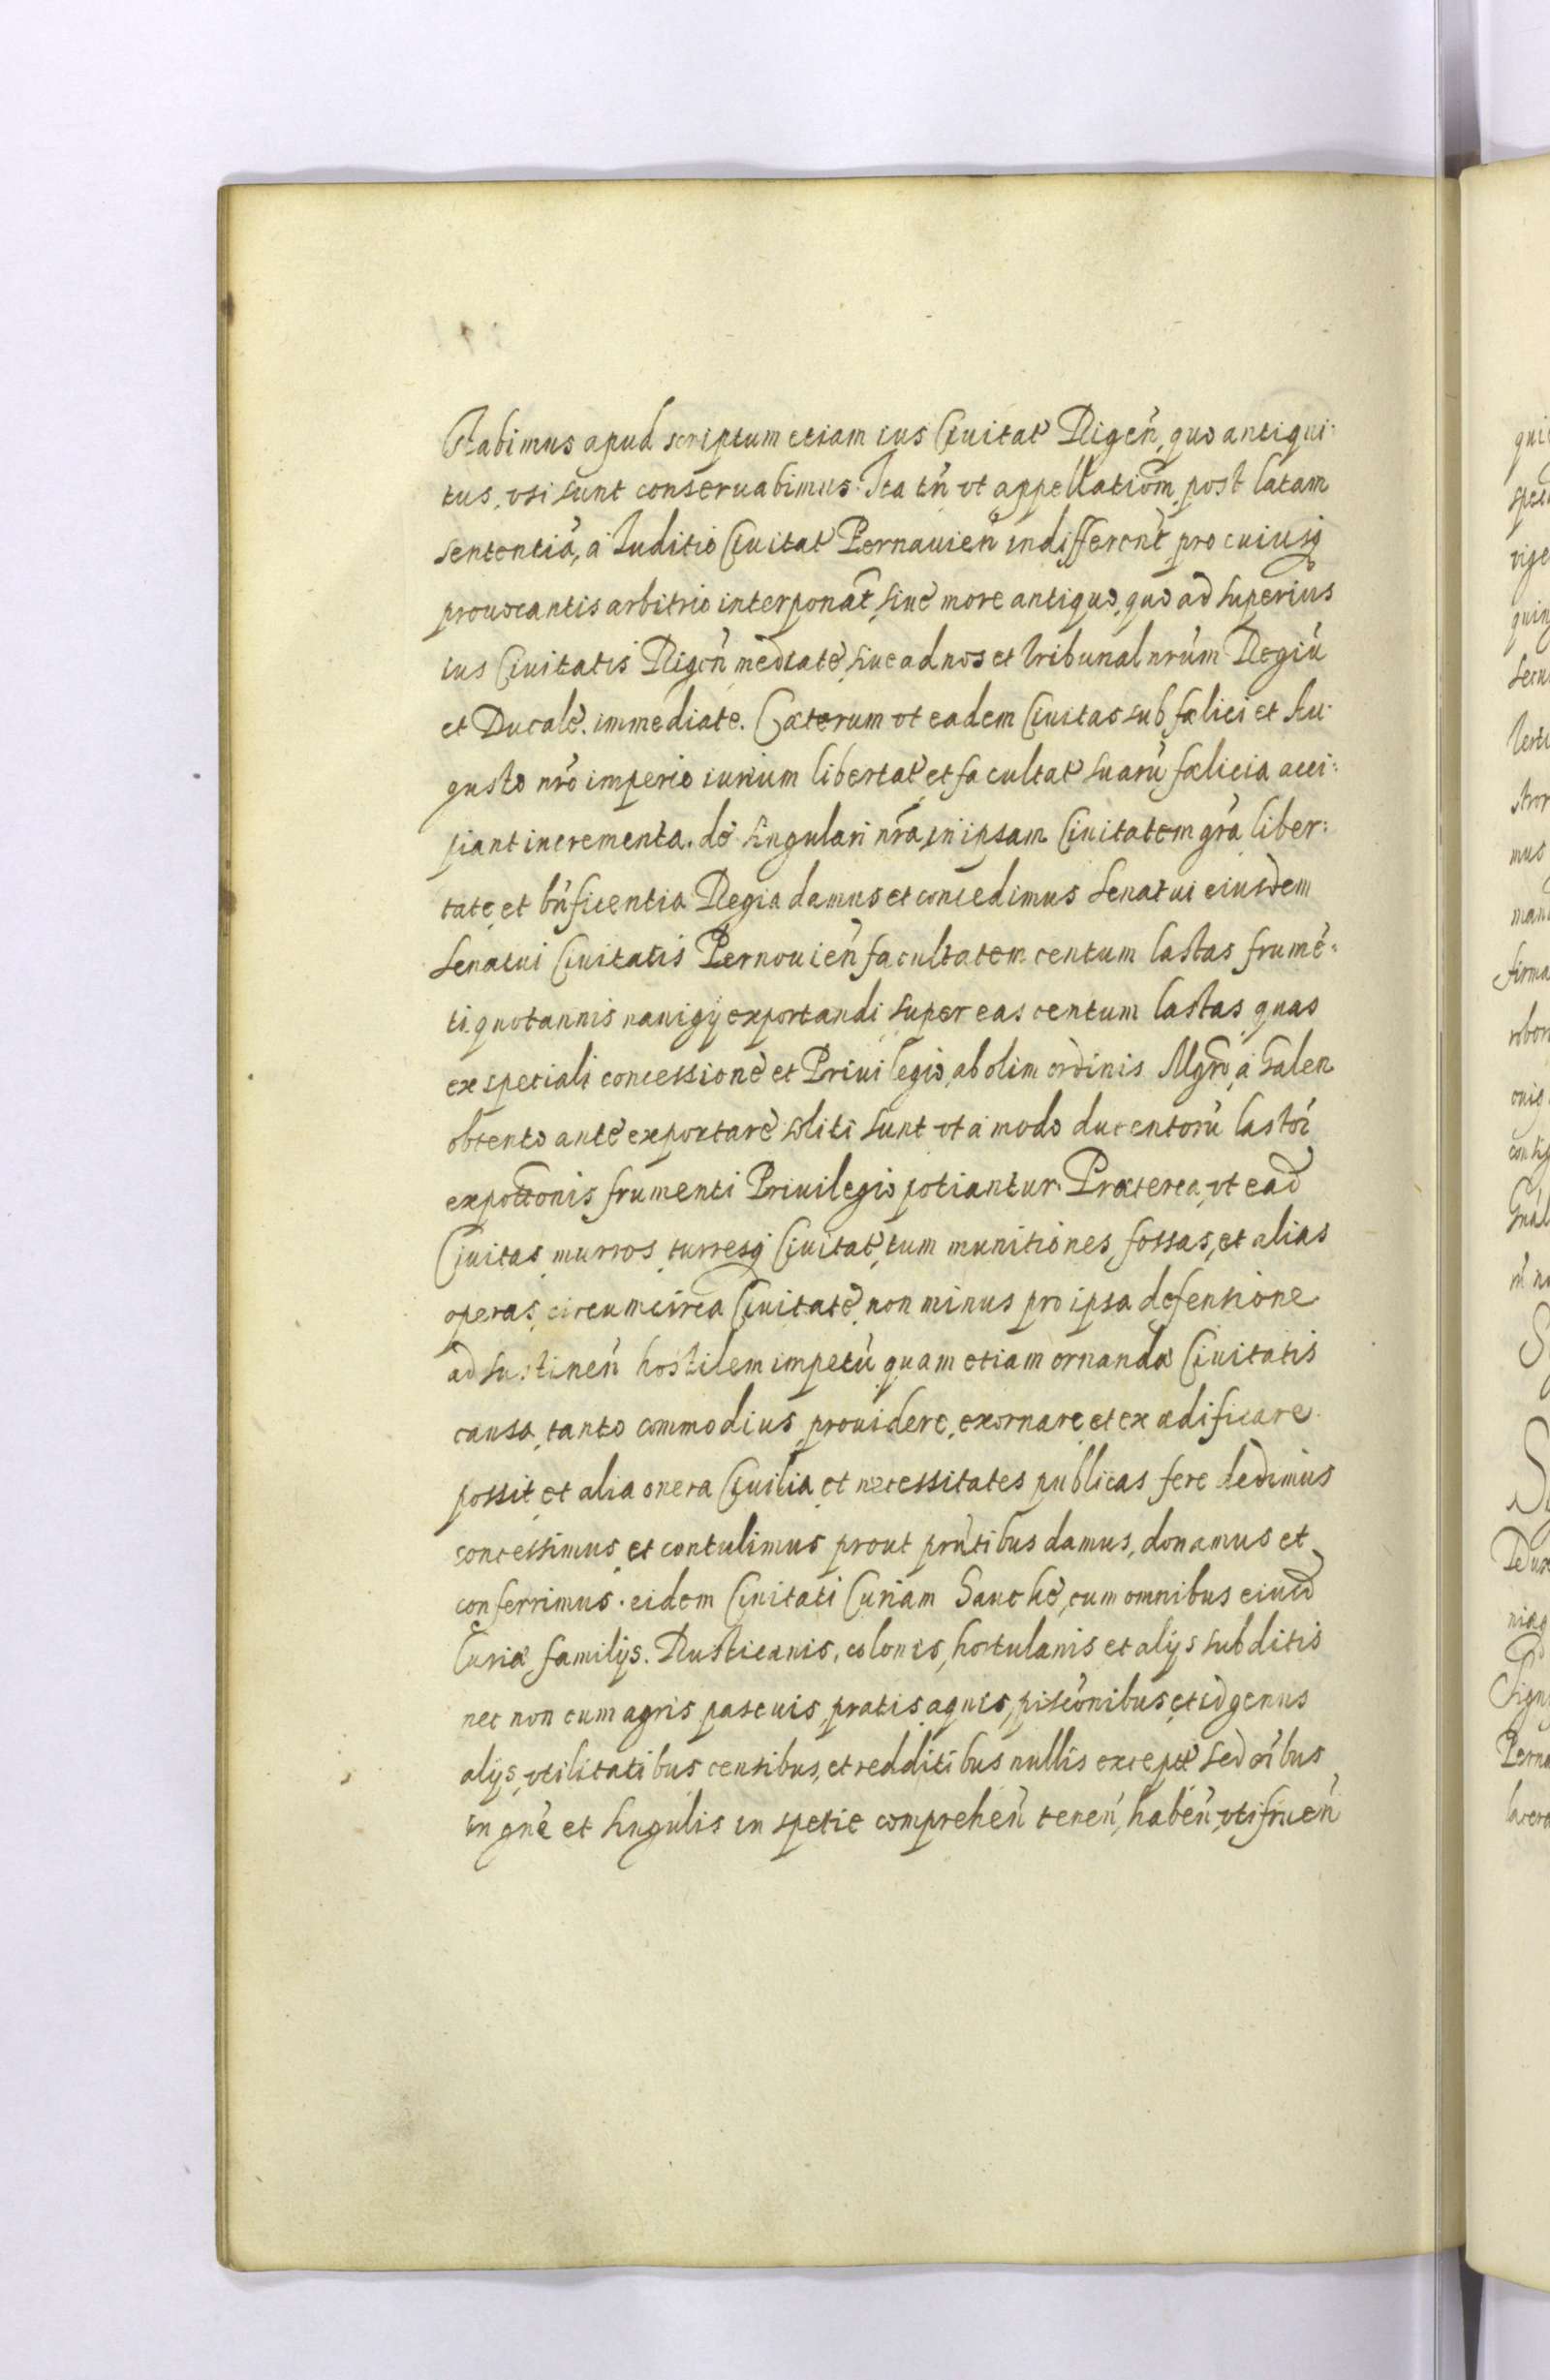 Stabimus apud scriptum etiam ius Ciuitat Rigen̄, quo antiqui:
tus, vsi sunt conseruabimus. Ita tn̄ vt appellatiom̄, post latam
sententiā, à Iuditio Ciuitat Pernauien̄ indifferent̄ pro cuiusq
prouocantis arbitrio interponat̄, siue more antiquo, quo ad superius
ius Ciuitatis Rigen̄ mediatè, siue ad nos et tribunal nr̄um Regiū
et Ducalē. immediate. Cæterum vt eadem Ciuitas sub fælici et Au:
gusto nr̄o imperio iurium libertat et facultat suarū fælicia acci:
piant incrementa. dè singulari nr̄a in ipsam Ciuitatem gr̄a liber:
tate et bn̄ficentia Regia damus et concedimus Senatui eiusdem
Senatui Ciuitatis Pernouien̄ facultatem centum lastas frumē:
ti quotannis nauigÿ exportandi super eas centum lastas quas
ex speciali concessionè et Priuilegio, ab olim ordinis Mgr̄o à Galen
obtento antè exportarè soliti sunt vt a modo ducentorū lastor̄
expottonis frumenti Priuilegio potiantur. Præterea vt ead
Ciuitas murros, turresq Ciuitat, tum munitiones, fossas, et alias
operas, circumcirca Ciuitatē, non minus pro ipsa defensione
ad sustinen̄ hostilem impetū quam etiam ornandæ Ciuitatis
causa, tanto commodius, prouidere, exornare et ex ædificare
possit, et alia onera Ciuilia et necessitates publicas fere dedimus
concessimus et contulimus prout prn̄tibus damus, donamus et
conferrimus. eidem Ciuitati Curiam Sauchè, cum omnibus eiusd
Curiæ familÿs. Rusticanis, colonis, hortulanis et alÿs subditis
nec non cum agris pascuis, pratis aquis, piscōnibus, et id genus
alÿs, vtilitatibus censibus, et redditibus nullis except sed oībus
in gn̄e et singulis in spetie comprehen̄ tenen̄, haben̄, vtifruen̄